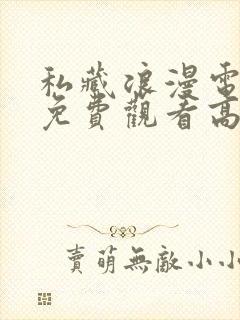 私藏浪漫電
免費觀看高
賣萌無敵小小